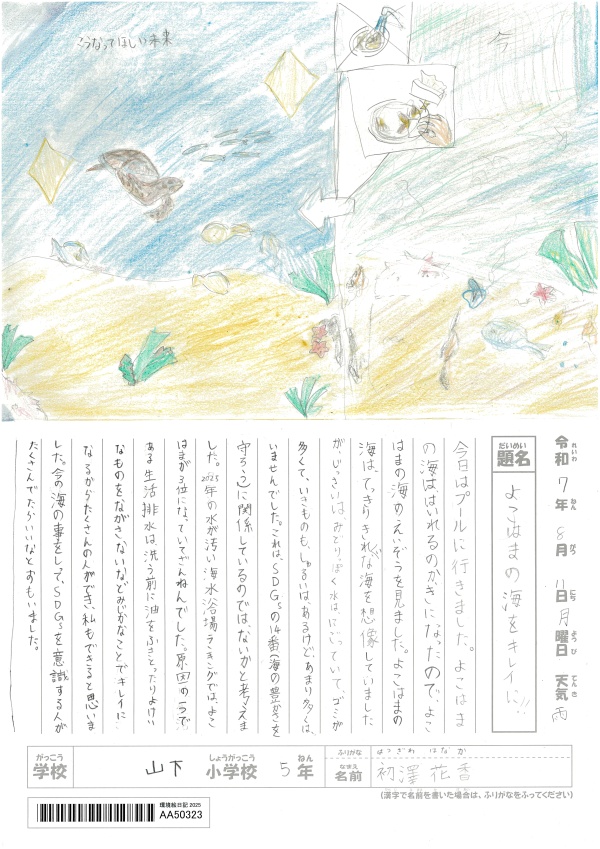 こうなってほしい未来
今
令和7年8月11日月曜日 天気 雨
れいわ ねん がつ にち ようび てんき
だいめい
題名
よこはまの海をキレイに!!
今日はプールに行きました。よこはま
の海ははいれるのかがきになったので、よこ
はまの海のえいぞうを見ました。よこはまの
海は、てっきりきれいな海を想像していました
が、じっさいはみどりぽく水は、にごっていて、ゴミが
多くて、いきものも、しゅるいはあるけどあまり多くは、
いませんでした。これは、SDGsの14番(海の豊かさを
守ろう)に関係しているのでは、ないかと考えま
した。2025年の水が汚い海水浴場ランキングでは、よこ
はまが3位になっていてざんねんでした。原因の一つで
ある生活排水は、洗う前に油をふきとったりよけい
なものをながさないなどみじかなことでキレイに
なるからたくさんの人ができ、私もできると思いま
した。今の海の事をしって、SDGsを意識する人が
たくさんでたらいいなとおもいました。
がっこう
学校
山下
しょうがっこう
小学校
5年
ねん
ふりがな
はつざわ はなか
なまえ
名前
初澤 花香
(漢字で名前を書いた場合は、ふりがなをふってください)
環境絵日記 2025
AA50323